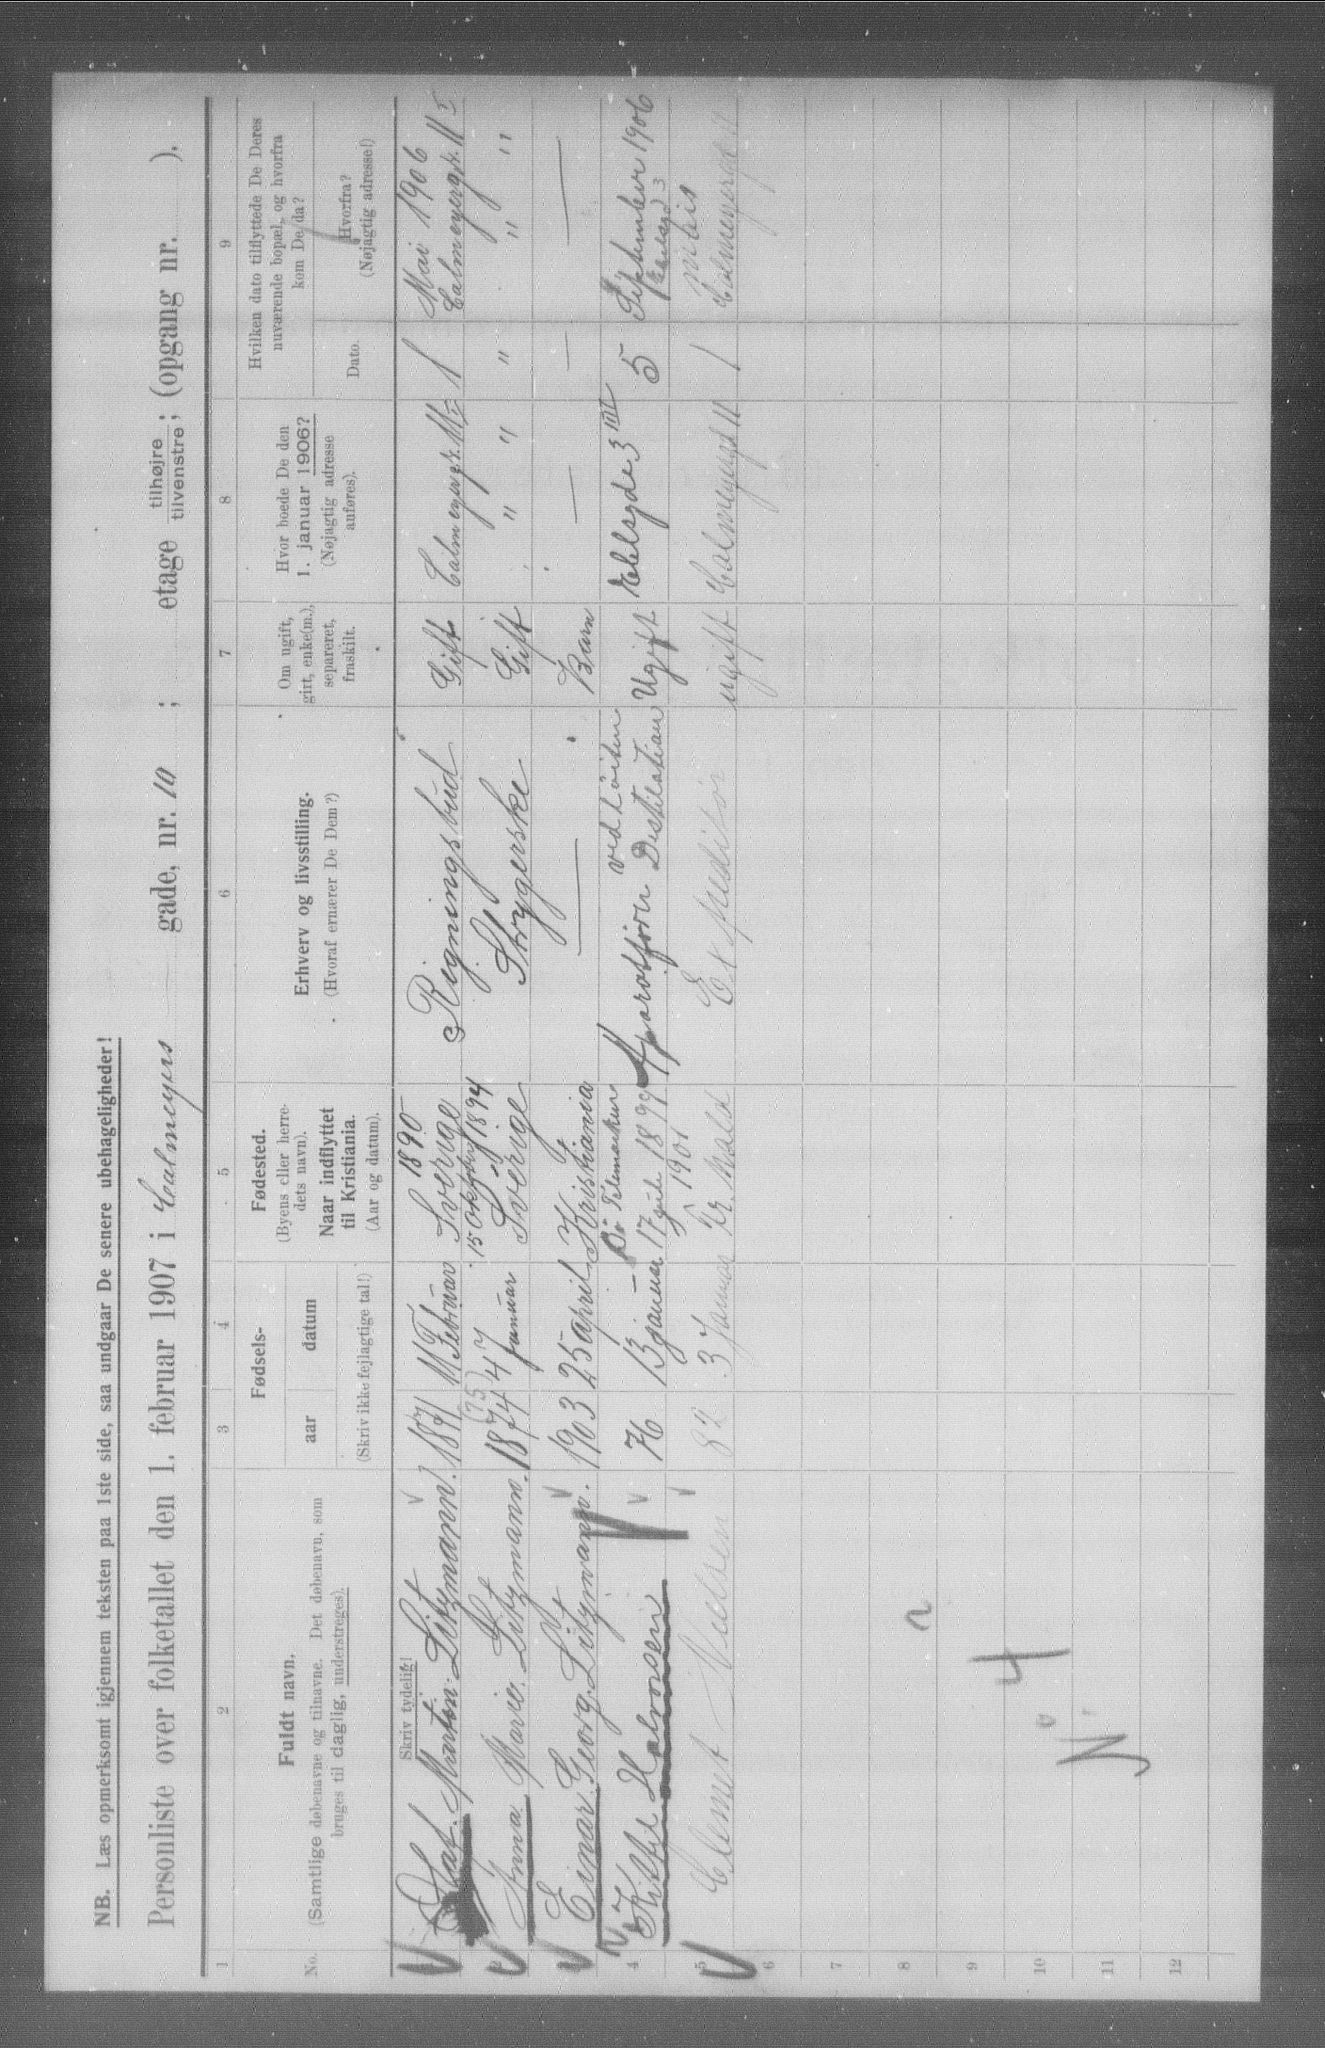 NB. Læs opmerksomt igjennem teksten paa 1ste side, saa undgaar De senere ubehageligheder!
Personliste over folketallet den 1. februar 1907 i Calmeyers gade, nr. 10 ; etage tilhøjre tilvenstre; (opgang nr. ).
1 2 3 4 5 6 7 8 9
No.
Fuldt navn.
(Samtlige døbenavne og tilnavne. Det døbenavn, som
bruges til daglig, understreges).
Skriv tydelig!
Fødsels-
aar datum
(Skriv ikke fejlagtige tal!)
Fødested.
(Byens eller herre-
dets navn).
Naar indflyttet
til Kristiania.
(Aar og datum).
Erhverv og livsstilling.
(Hvoraf ernærer De Dem?)
Om ugift,
gift, enke(m.),
separeret,
fraskilt.
Hvor boede De den
1. januar 1906?
(Nøjagtig adresse
anføres).
Hvilken dato tilflyttede De Deres
nuværende bopæl, og hvorfra
kom De da?
Dato.
Hvorfra?
(Nøjagtig adresse!)
Olaf. Martin. Litzmann. 1871 11 Februar Sverige 1890 Regningsbud Gift Calmeyergt. 11 1 Mai 1906
Calmeyergt. 11
2 Anna Marie. Litzmann. 1874 (75) 4 januar Sverige 15 1894 Strygerske Gift " " " " "
Einar. Georg. Litzmann. 1903 25 april Kristiania — Barn — — —
4 Kittil Halvorsen 76 13 januar Bø Telemarken 17 1899 Aparatfører ved Løiten Destilation Ugift 3 III 5 September 1906
3
5 Clemet 82 3 Januar Fr.hald 1901 Expeditør ugift Calmeyergd 11 1
Calmeyergd 11
6
7
8
9
10
11
12
4